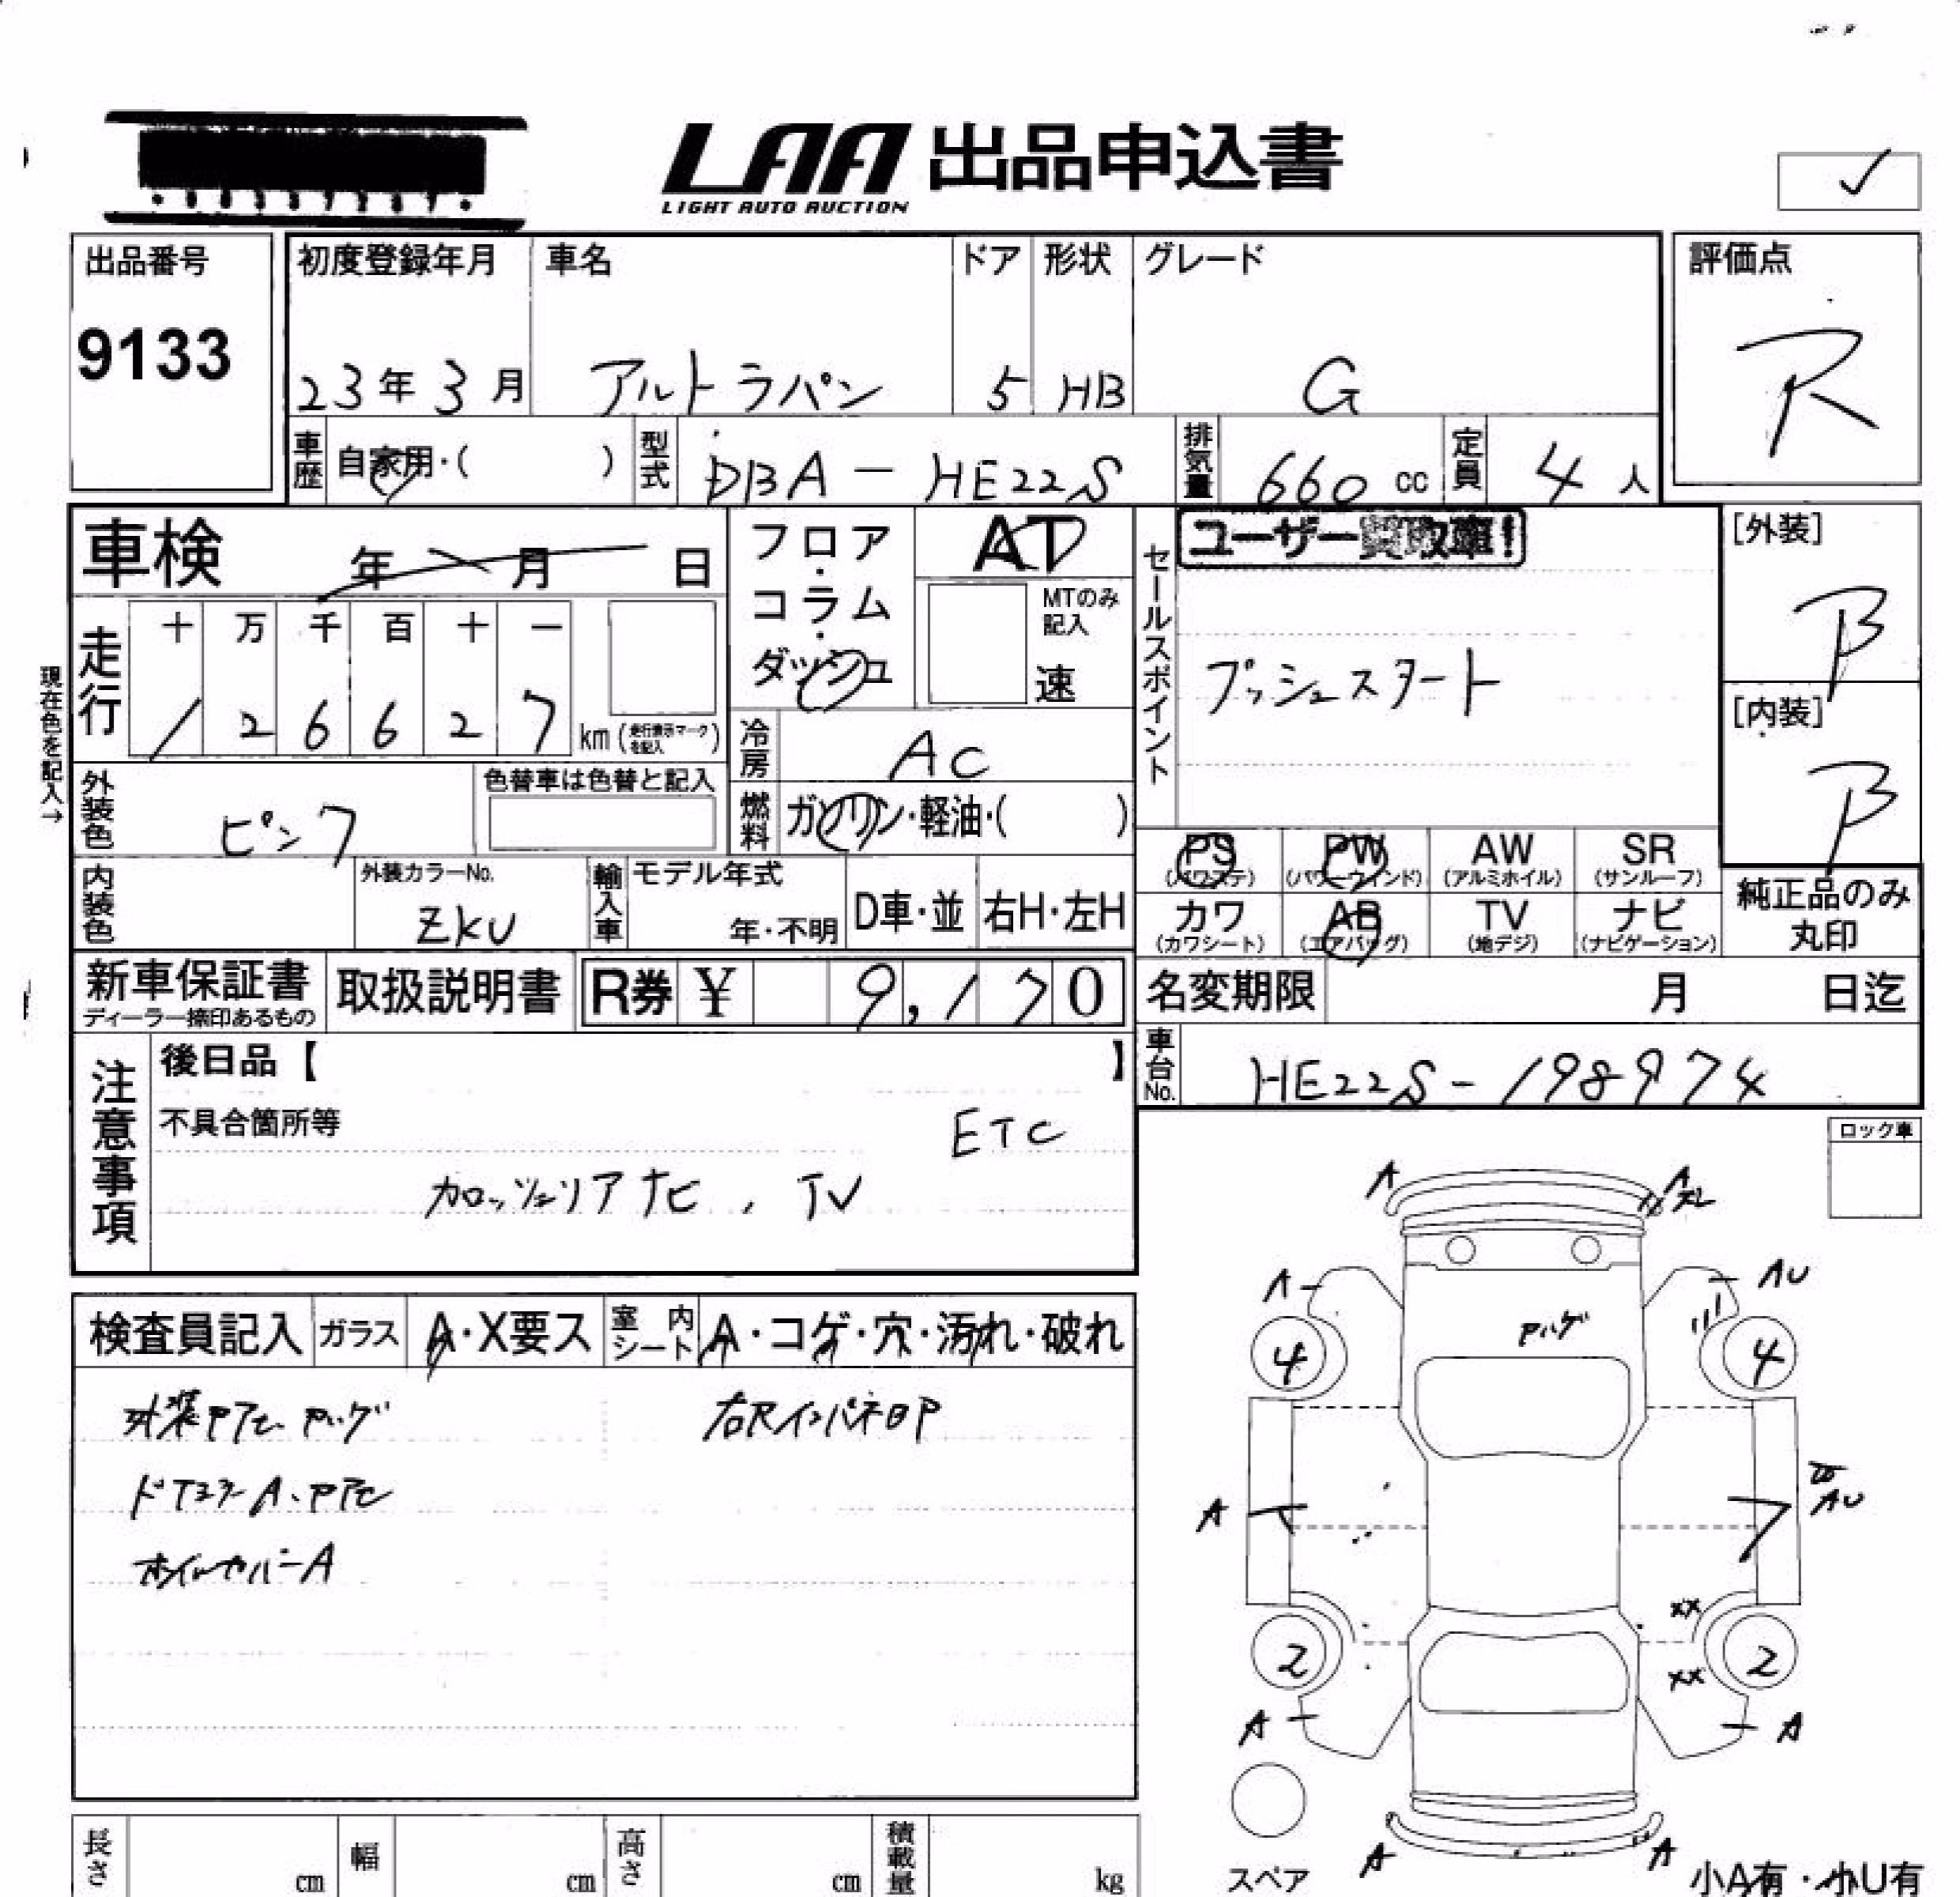 LAA 出品申込書
LIGHT AUTO AUCTION
出品番号
9133
初度登録年月
23年3月
車名
アルトラパン
ドア
5
形状
HB
グレード
G
評価点
R
車歴
自家用・( )
型式
DBA-HE22S
排気量
660 cc
定員
4 人
車検 年 月 日
フロア・コラム・ダッシュ
AT
MTのみ記入
速
セールスポイント
ユーザー買取車!
プッシュスタート
[外装]
B
[内装]
B
現在色を記入→
走行
十 万 千 百 十 一
1 2 6 6 2 7 km (走行表示マークを記入)
冷房
AC
燃料
ガソリン・軽油・( )
外装色
ピンク
色替車は色替と記入
内装色
外装カラーNo.
ZKU
輸入車
モデル年式
年・不明
D車・並
右H・左H
PS (パワステ)
PW (パワーウィンド)
AW (アルミホイル)
SR (サンルーフ)
カワ (カワシート)
AB (エアバッグ)
TV (地デジ)
ナビ (ナビゲーション)
純正品のみ丸印
新車保証書
ディーラー捺印あるもの
取扱説明書
R券 ¥ 9,170
名変期限 月 日迄
車台No.
HE22S-198974
注意事項
後日品【 】
不具合箇所等
ETC
カロッツェリアナビ, TV
ロック車
検査員記入
ガラス
A・X要ス
室内シート
A・コゲ・穴・汚れ・破れ
ドアミラーA、
ホイールカバーA
A
A
A
AU
4
4
A
AU
XX
XX
2
2
A
A
A
A
スペア
小A有・小U有
長さ cm
幅 cm
高さ cm
積載量 kg